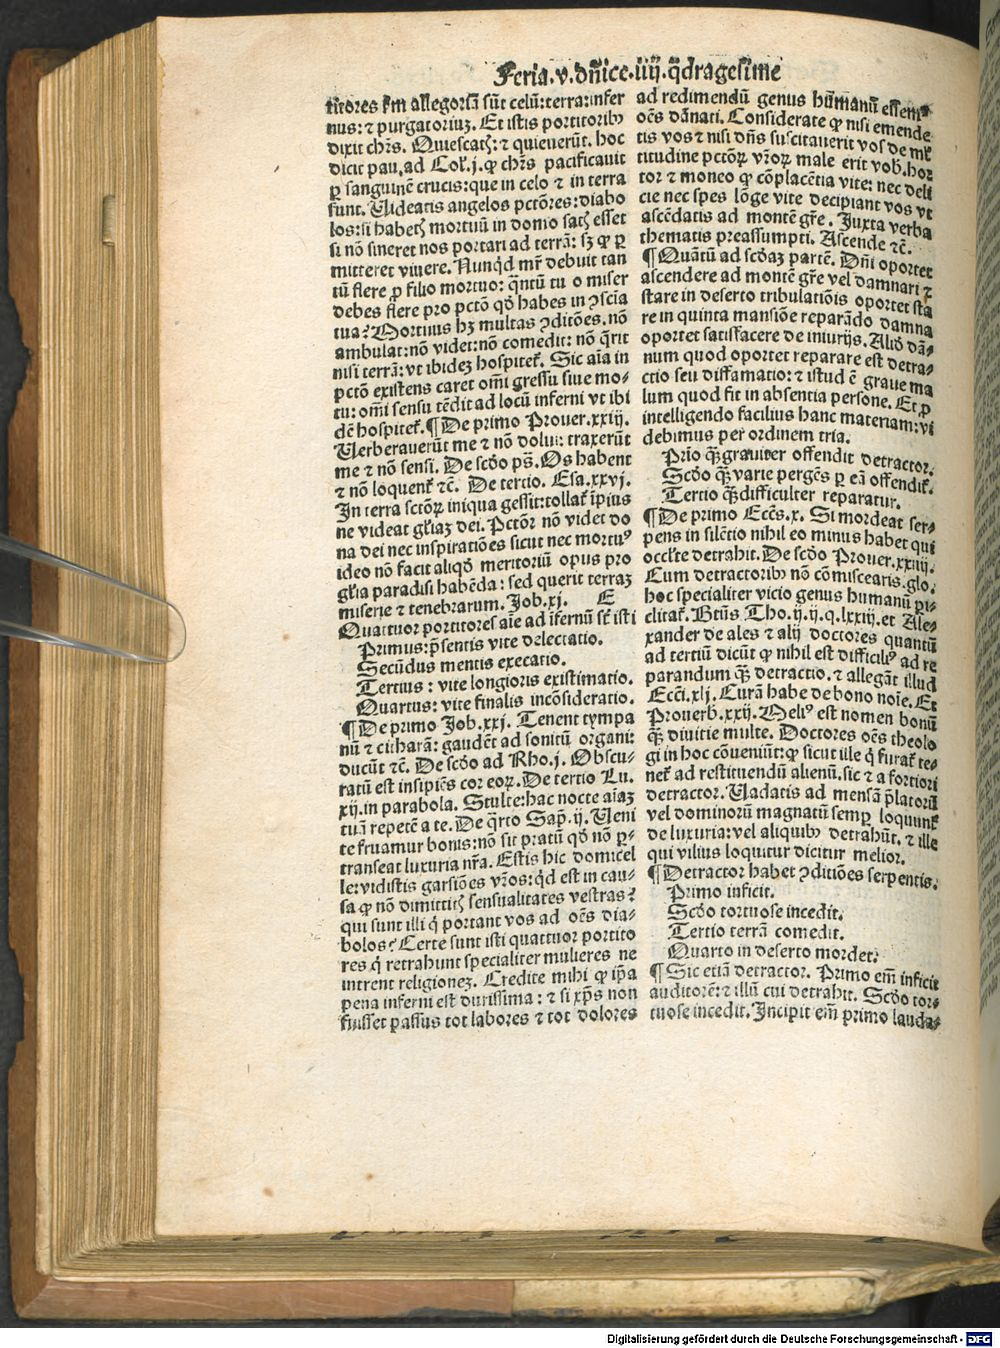 Feria.v.dn̄ice.iiij.q̄dragesime
titores sm̄ allegoriā sūt celū:terra:infer
nus:⁊ purgatoriuȝ. Et istis portitorib᷒
dixit chr̄s. Quiescatꝭ:⁊ quieuerūt. hoc
dicit pau.ad Col.j.ꝙ chr̄s pacificauit
ꝑ sanguinē crucis:que in celo ⁊ in terra
sunt. Uideatis angelos pctōres:diabo
los:si habetꝭ mortuū in domo satꝭ esset
si nō sineret nos portari ad terrā: sȝ ꝙ ꝑ
mitteret viuere. Nunq̄d mr̄ debuit tan
tū flere ꝓ filio mortuo: q̄ntū tu o miser
debes flere pro pctō qd̄ habes in ꝯscīa
tua? Mortuus hȝ multas ꝯditōes.nō
ambulat:nō videt:nō comedit: nō q̄rit
nisi terrā:vt ibideȝ hospitet᷒. Sic aīa in
pctō existens caret omī gressu siue mo-
tu: omī sensu tēdit ad locū inferni vt ibi
dē hospitet᷒.¶De primo Prouer.xxiij.
Uerberauerūt me ⁊ nō dolui: traxerūt
me ⁊ nō sensi. De scd̄o ps̄. Os habent
⁊ nō loquent᷒ ⁊c̄. De tertio. Esa.xxvj.
In terra sctōꝝ iniqua gessit:tollat᷒ īpius
ne videat gl̄iaȝ dei. Pctōr nō videt do
na dei nec inspiratiōes sicut nec mortu᷒
ideo nō facit aliqd̄ meritoriū opus pro
gl̄ia paradisi habēda: sed querit terraȝ
miserie ⁊ tenebrarum. Job.xj. E
Quattuor portitores aīe ad īfernū st̄ isti
Primus:p̄sentis vite delectatio.
Secūdus mentis execatio.
Tertius: vite longioris existimatio.
Quartus: vite finalis incōsideratio.
¶De primo Job.xxj. Tenent tympa
nū ⁊ citharā: gaudēt ad sonitū organi:
ducūt ⁊c̄. De scd̄o ad Rho.j. Obscu-
ratū est insipiēs cor eoꝝ. De tertio Lu.
xij.in parabola. Stulte:hac nocte aīaȝ
tuā repetē a te. De q̄rto Sap̄.ij. Ueni
te fruamur bonis:nō sit pratū qd̄ nō ꝑ-
transeat luxuria nr̄a. Estis hic domicel
le:vidistis garsiōes vr̄os:qd̄ est in cau-
sa ꝙ nō dimittitꝭ sensualitates vestras?
qui sunt illi q̄ portant vos ad oēs dia-
bolos? Certe sunt isti quattuor portito
res q̄ retrahunt specialiter mulieres ne
intrent religioneȝ. Credite mihi ꝙ ip̄a
pena inferni est durissima: ⁊ si xp̄s non
fuisset passus tot labores ⁊ tot dolores
ad redimendū genus hūmanū essem᷒
oēs dānati. Considerate ꝙ nisi emende
tis vos ⁊ nisi dn̄s suscitauerit vos de ml̄
titudine pctōꝝ vr̄oꝝ male erit vob̄.hor
tor ⁊ moneo ꝙ cōplacētia vite: nec deli
cie nec spes lōge vite decipiant vos vt
ascēdatis ad montē gr̄e. Juxta verba
thematis preassumpti. Ascende ⁊c̄.
¶Quātū ad scd̄aȝ partē. Dn̄i oportet
ascendere ad montē gr̄e vel damnari ⁊
stare in deserto tribulatiōis oportet sta
re in quinta mansiōe reparādo damna
oportet satisfacere de iniurijs. Aliud dā-
num quod oportet reparare est detra-
ctio seu diffamatio: ⁊ istud ē graue ma
lum quod fit in absentia persone. Et ꝓ
intelligendo facilius hanc materiam: vi
debimus per ordinem tria.
Prīo q̄ꝫ grauiter offendit detractor.
Scd̄o q̄ꝫ varie pergēs ꝑ eā offendit᷒.
Tertio q̄ꝫ difficulter reparatur.
¶De primo Eccs̄.x. Si mordeat ser-
pens in silētio nihil eo minus habet qui
occl̄te detrahit. De scd̄o Prouer.xxiiij.
Cum detractorib᷒ nō cōmiscearis.glo.
hoc specialiter vicio genus humanū ꝑi-
clitat᷒. Bt̄us Tho.ij.ij.q.lxxij.et Ale-
xander de ales ⁊ alij doctores quantū
ad tertiū dicūt ꝙ nihil est difficili᷒ ad re
parandum q̄ꝫ detractio. ⁊ allegāt illud
Eccī.xlj. Curā habe de bono noīe. Et
Prouerb.xxij. Meli᷒ est nomen bonū
q̄ꝫ diuitie multe. Doctores oēs theolo
gi in hoc cōueniūt: ꝙ sicut ille q̄ furat᷒ te-
net᷒ ad restituendū alienū. sic ⁊ a fortiori
detractor. Uadatis ad mensā p̄latorū
vel dominorum magnatū semꝑ loquunt᷒
de luxuria: vel aliquib᷒ detrahūt. ⁊ ille
qui vilius loquitur dicitur melior.
¶Detractor habet ꝯditiōes serpentis.
Primo inficit.
Scd̄o tortuose incedit.
Tertio terrā comedit.
Quarto in deserto mordet.
¶Sic etiā detractor. Primo em̄ inficit
auditorē: ⁊ illū cui detrahit. Scd̄o tor-
tuose incedit. Incipit em̄ primo lauda-
Digitalisierung gefördert durch die Deutsche Forschungsgemeinschaft - DFG